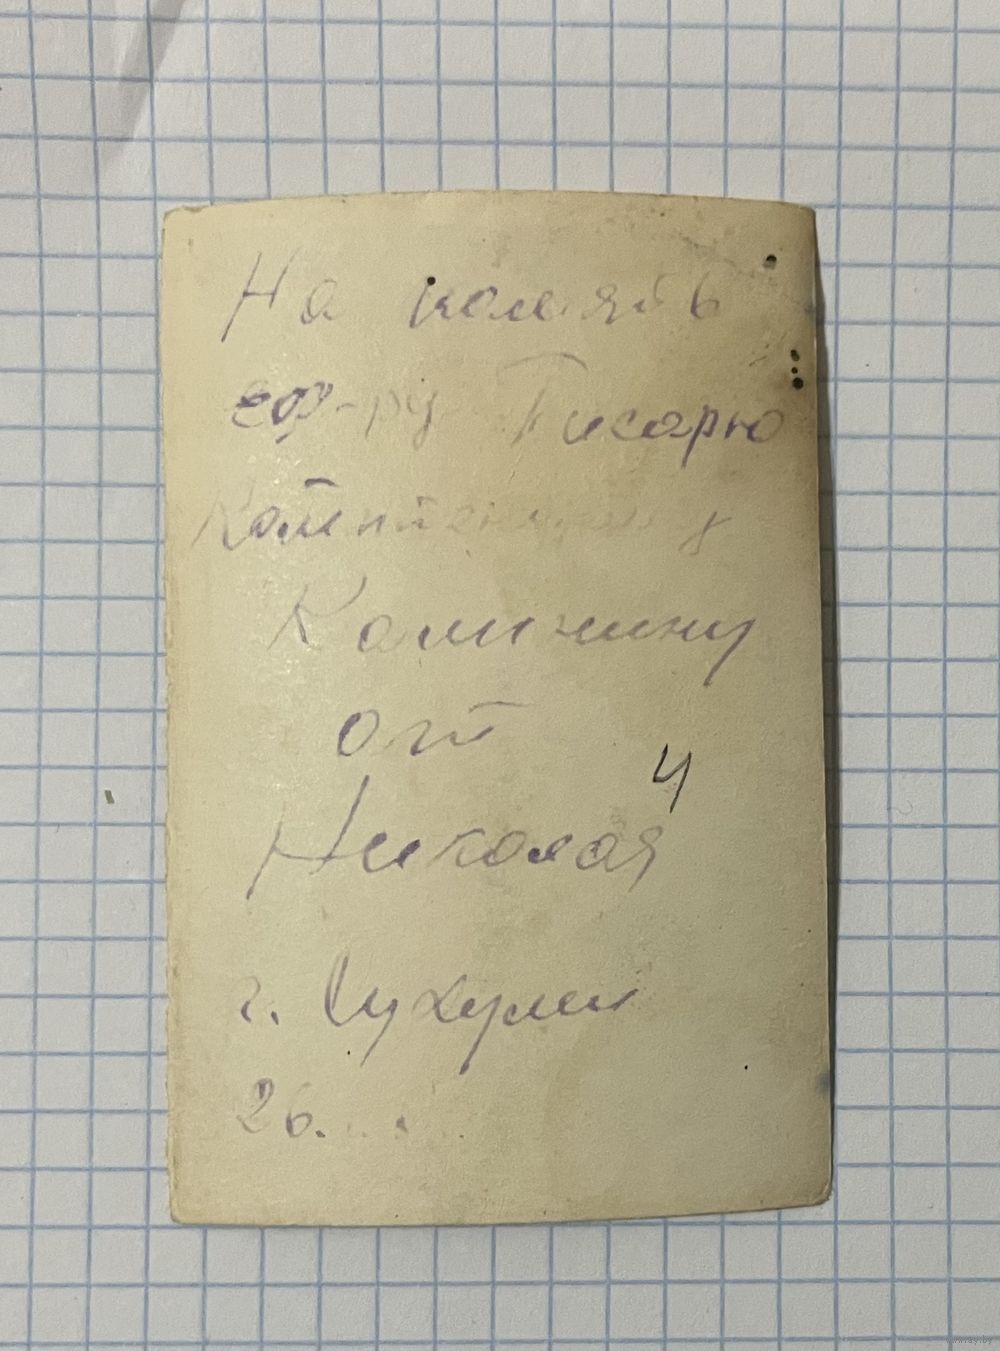 На память
Писарю
Калинину
от
Николая
4
г. Сухуми
26.